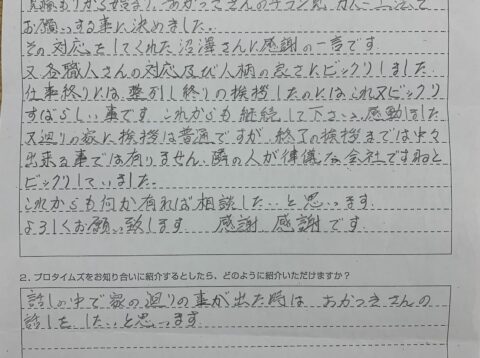 見積もりから始まり、あかつきさんのチラシ見
お願いする事に決めました。
その対応をしてくれた沼澤さんに感謝の一言です
又各職人さんの対応及び人柄の良さにビックリしました
仕事終りには、整列し終りの挨拶したのにはこれ又ビックリ
すばらしい事です これからも継続して下さい。感動しました
又廻りの家に挨拶は普通ですが、終了の挨拶までは中々
出来る事では有りません、隣の人が律儀な会社ですねと
ビックリしていました。
これからも何か有れば相談したいと思います。
よろしくお願い致します 感謝 感謝です.
2. プロタイムズをお知り合いに紹介するとしたら、どのように紹介いただけますか？
話しの中で家の廻りの事が出た時は おかつきさんの
話しをしたいと思います